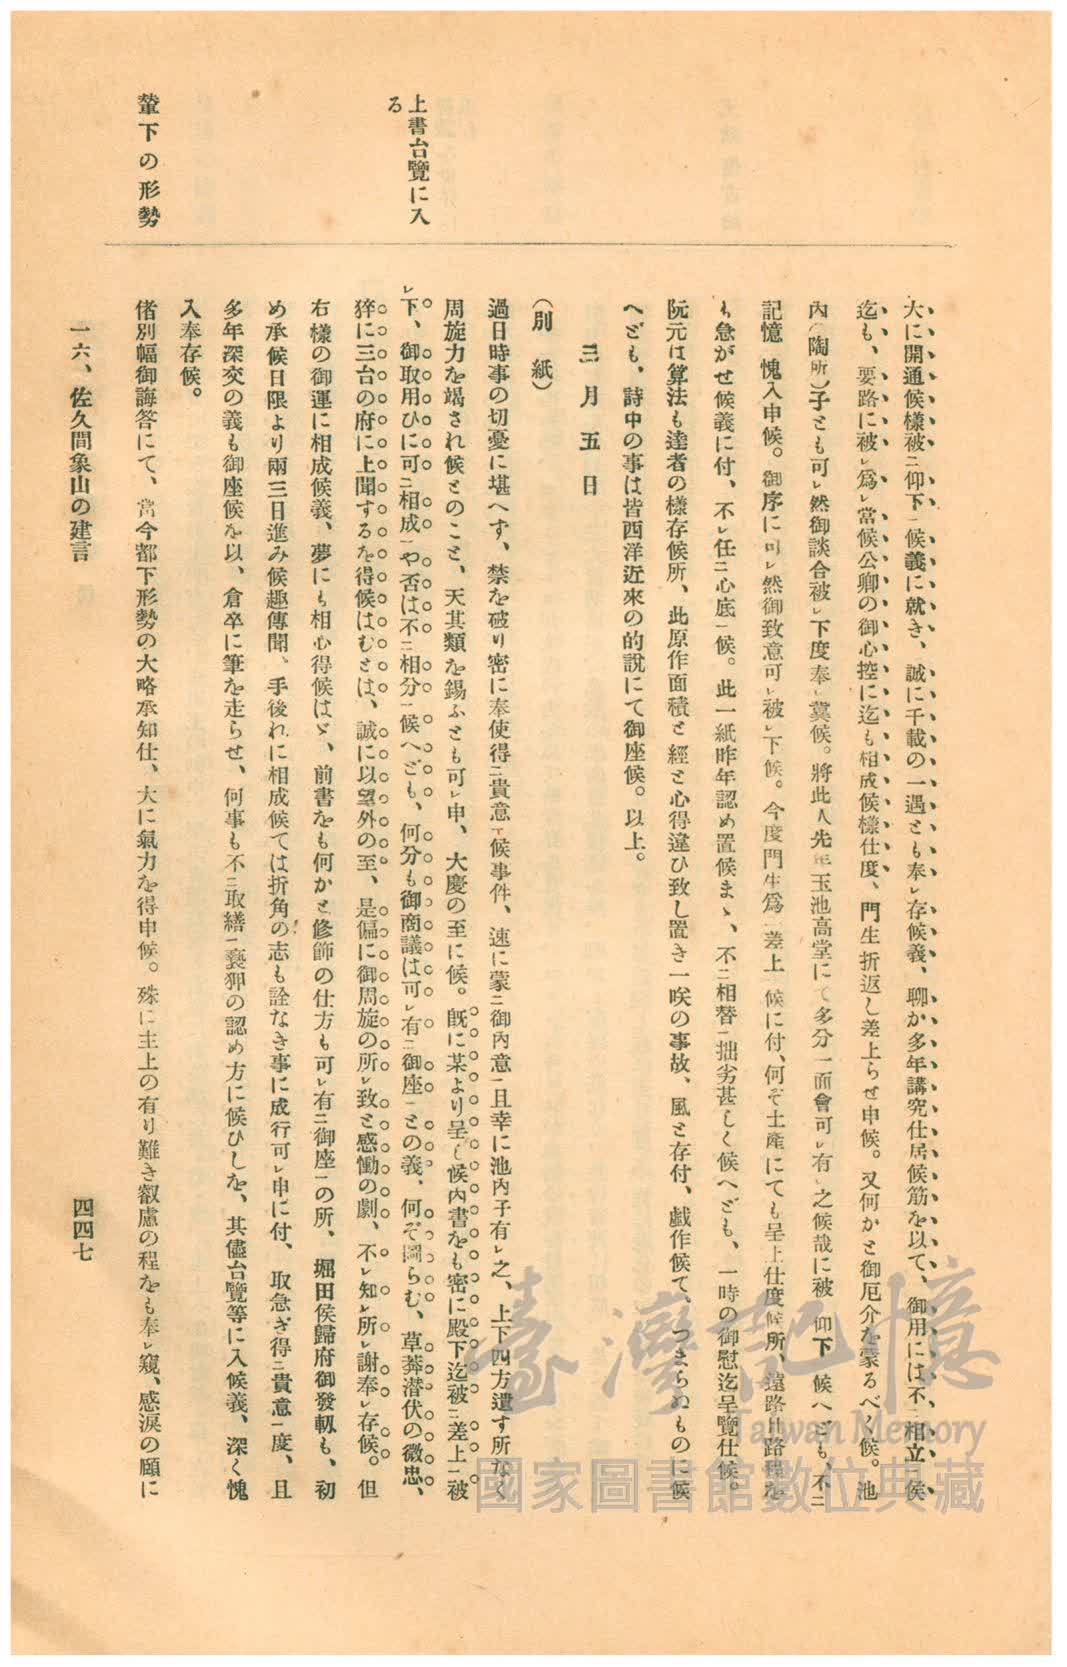 上書台覽に入
る
輦下の形勢
大に開通候樣被㆓仰下㆒候義に就き、誠に千載の一遇とも奉㆑存候義、聊か多年講究仕居候筋を以て、御用には不㆓相立㆒候
迄も、要路に被㆑爲㆑當候公卿の御心控に迄も相成候樣仕度、門生折返し差上らせ申候。又何かと御厄介を蒙るべく候。池
內(陶所)子とも可㆑然御談合被㆑下度奉㆑冀候。將此人先年玉池高堂にて多分一面會可㆑有㆑之候哉に被㆓仰下㆒候へども、不㆓
記憶㆒愧入申候。御序に可㆑然御致意可㆑被㆑下候。今度門生爲㆓差上㆒候に付、何ぞ土產にても呈上仕度候所、遠路且路程を
も急がせ候義に付、不㆑任㆓心底㆒候。此一紙昨年認め置候まゝ、不㆓相替㆒拙劣甚しく候へども、一時の御慰迄呈覽仕候。
阮元は算法も達者の樣存候所、此原作面積と經と心得違ひ致し置き一咲の事故、風と存付、戲作候て、つまらぬものに候
へども、詩中の事は皆西洋近來の的說にて御座候。以上。
三月五日
(別紙)
過日時事の切憂に堪へず、禁を破り密に奉使得㆓貴意㆒候事件、速に蒙㆓御內意㆒且幸に池內子有㆑之、上下四方遺す所なく
周旋力を竭され候とのこと、天其類を錫ふとも可㆑申、大慶の至に候。既に某より呈し候內書をも密に殿下迄被㆓差上㆒被
㆑下、御取用ひに可㆓相成㆒や否は不㆓相分㆒候へども、何分も御商議は可㆑有㆓御座㆒との義、何ぞ圖らむ、草莽潜伏の微忠、
猝に三台の府に上聞するを得候はむとは、誠に以望外の至、是偏に御周旋の所㆑致と感慟の劇、不㆑知㆑所㆑謝奉㆑存候。但
右樣の御運に相成候義、夢にも相心得候はゞ、前書をも何かと修飾の仕方も可㆑有㆓御座㆒の所、堀田侯歸府御發軔も、初
め承候日限より兩三日進み候趣傳聞、手後れに相成候ては折角の志も詮なき事に成行可㆑申に付、取急ぎ得㆓貴意㆒度、且
多年深交の義も御座候を以、倉卒に筆を走らせ、何事も不㆓取繕㆒褻狎の認め方に候ひしを、其儘台覽等に入候義、深く愧
入奉存候。
偖別幅御誨答にて、當今都下形勢の大略承知仕、大に氣力を得申候。殊に主上の有り難き叡慮の程をも奉㆑窺、感淚の頤に
一六、佐久間象山の建言
四四七
臺灣記憶
Taiwan Memory
國家圖書館數位典藏